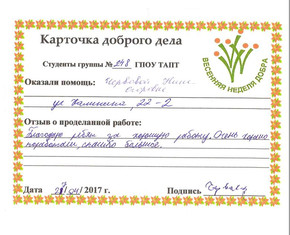 Карточка доброго дела
Студенты группы № 248 ГПОУ ТАПТ
ВЕСЕННЯЯ НЕДЕЛЯ ДОБРА
Оказали помощь: Нине
ул Калинина, 22-2
Отзыв о проделанной работе:
Благодарю ребят за хорошую работу. Очень хорошо
поработали, спасибо большое.
Дата /04/ 2017 г. Подпись